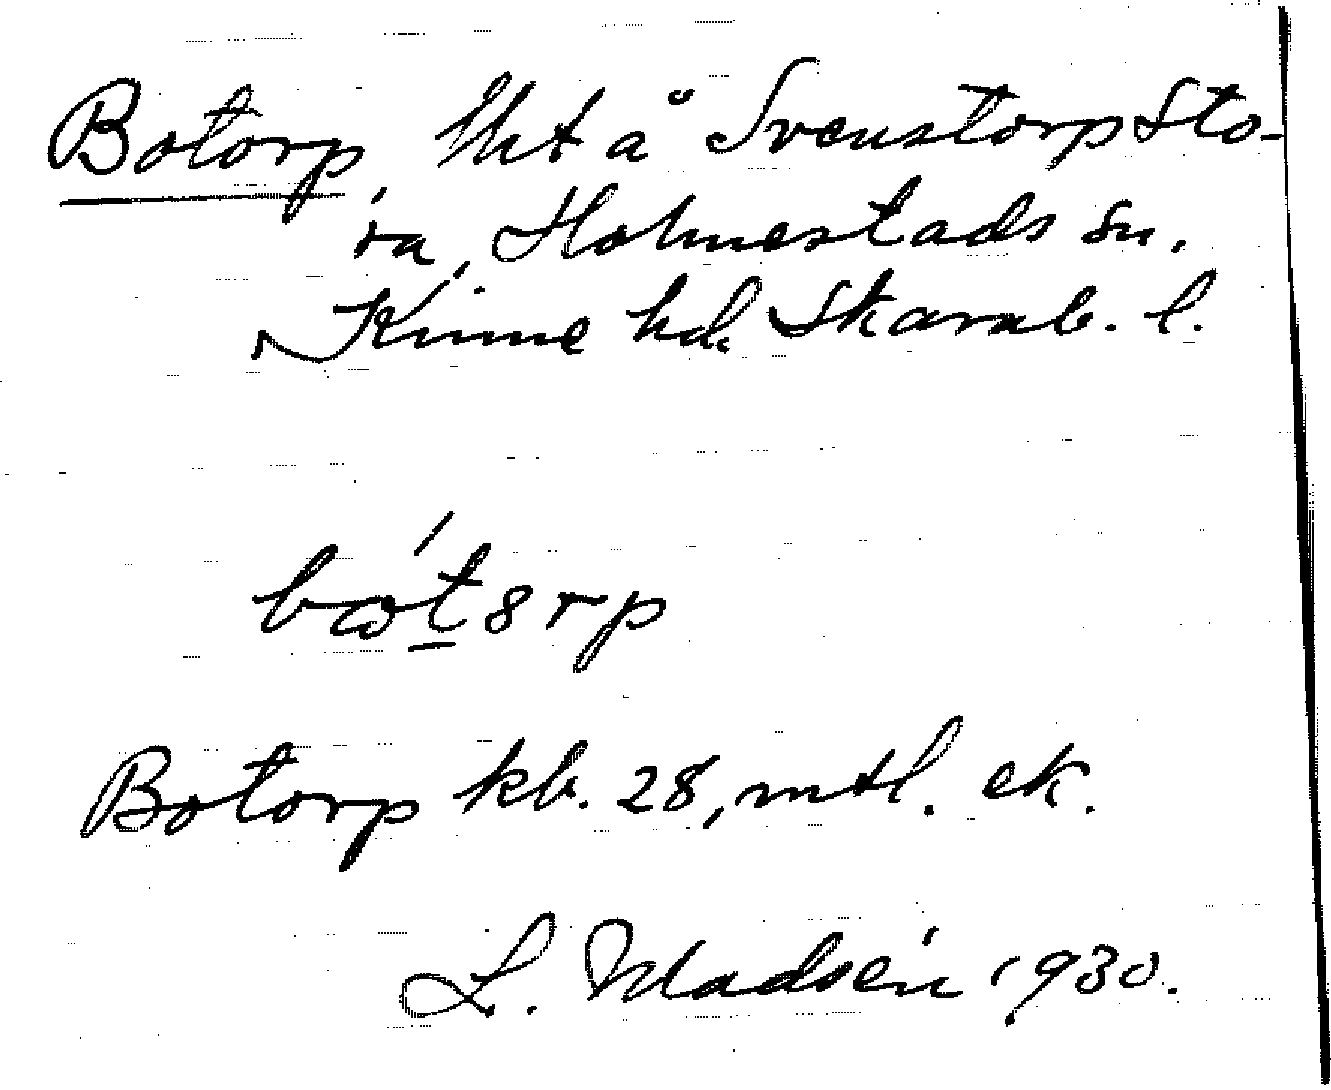 Botorp, lht å Svenstorp Sto-
ra, Holmestads sn.
Kinne hd. Skarab. l.
bω´t8rp
Botorp kb. 28, mtl. ek.
L. Madsén 1930.